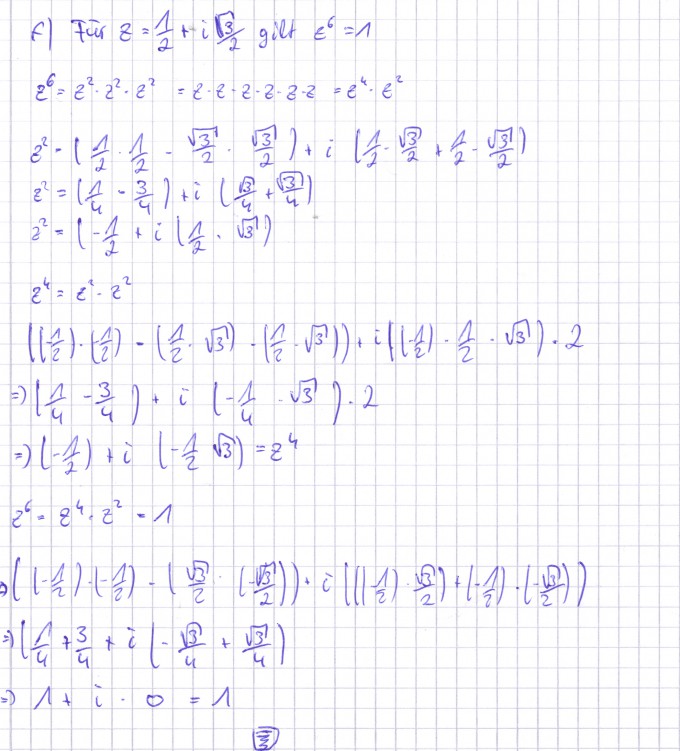 f) Für z = 1/2 + i √3/2 gilt z⁶ = 1
z⁶ = z² · z² · z² = z · z · z · z · z · z = z⁴ · z²
z² = (1/2 · 1/2 - √3/2 · √3/2) + i (1/2 · √3/2 + 1/2 · √3/2)
z² = (1/4 - 3/4) + i (√3/4 + √3/4)
z² = (-1/2 + i (1/2 · √3)
z⁴ = z² · z²
((-1/2) · (-1/2) - (1/2 · √3) · (1/2 · √3)) + i ((-1/2) · 1/2 · √3) · 2
=> (1/4 - 3/4) + i (-1/4 · √3) · 2
=> (-1/2) + i (-1/2 √3) = z⁴
z⁶ = z⁴ · z² = 1
=> ((-1/2) · (-1/2) - (√3/2 · (-√3/2))) + i (((-1/2) · √3/2) + (-1/2) · (-√3/2))
=> (1/4 + 3/4 + i (-√3/4 + √3/4)
=> 1 + i · 0 = 1